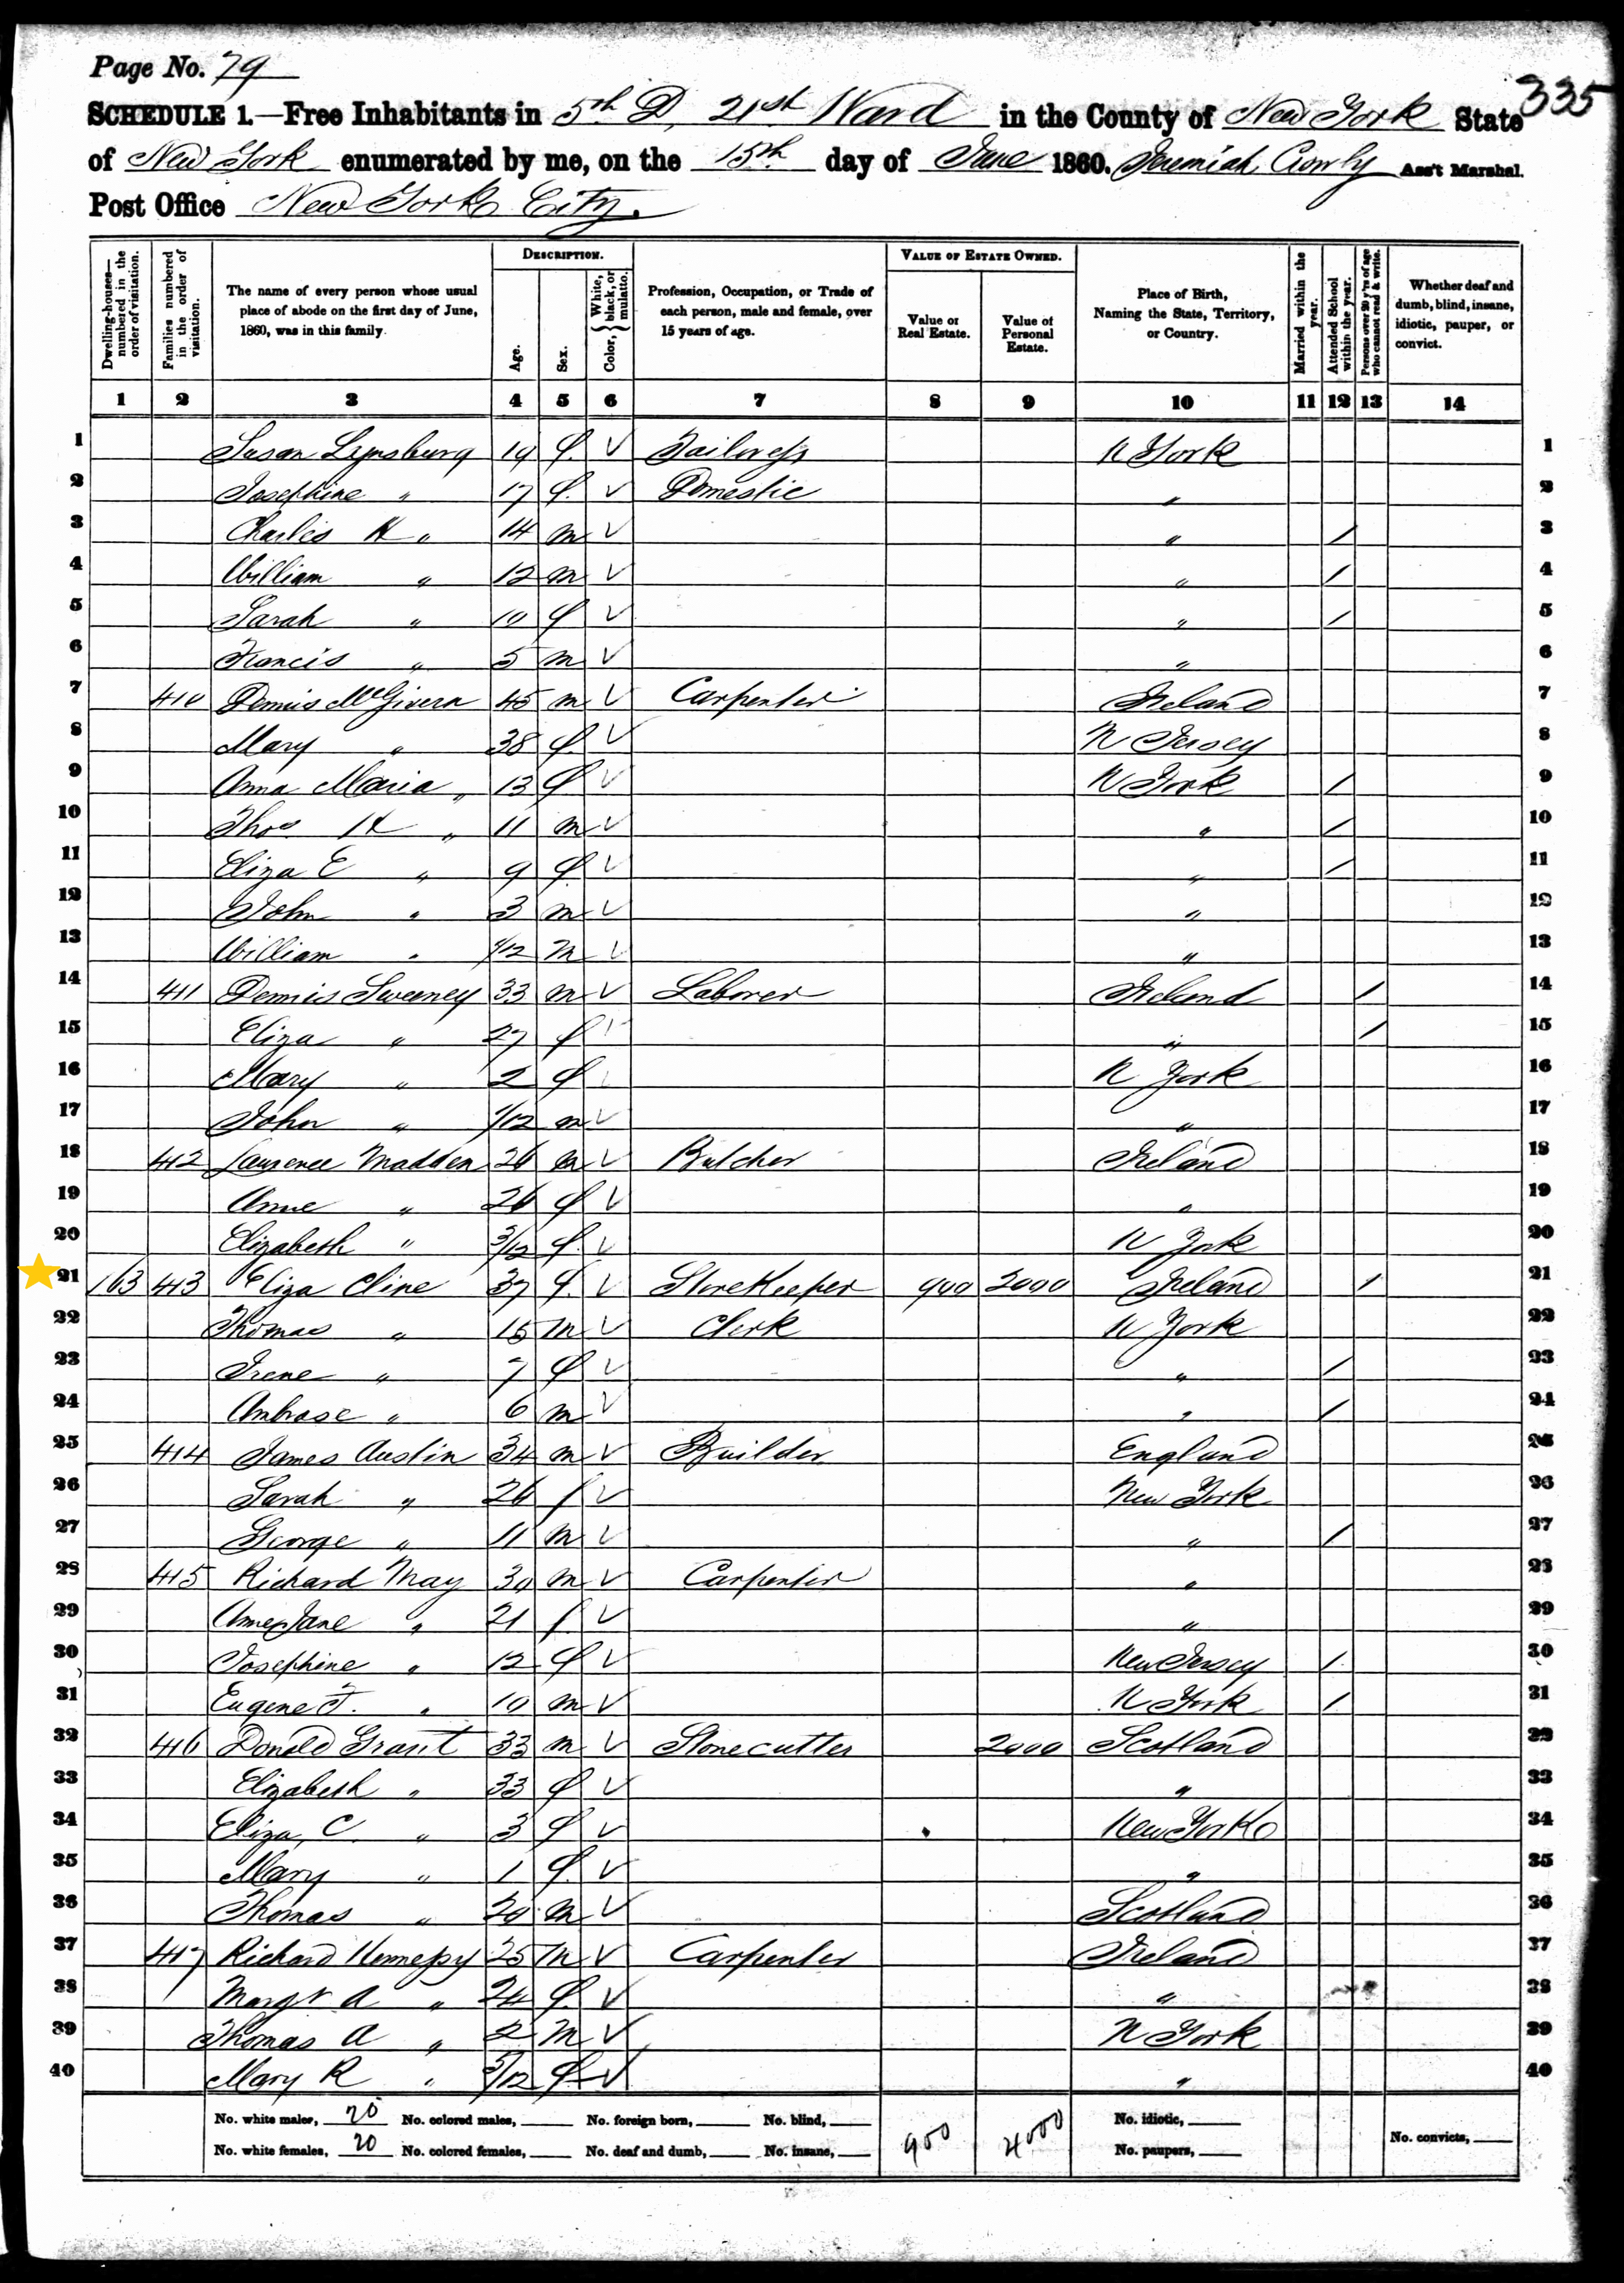 Page No. 79
335
SCHEDULE 1.—Free Inhabitants in 5th D, 21st Ward in the County of New York State
of New York enumerated by me, on the 15th day of June 1860. Jeremiah Ass't Marshal.
Post Office New York City.
Dwelling-houses—numbered in the order of visitation.
Families numbered in the order of visitation.
The name of every person whose usual place of abode on the first day of June, 1860, was in this family.
DESCRIPTION.
Age.
Sex.
Color, { White, black, or mulatto.
Profession, Occupation, or Trade of each person, male and female, over 15 years of age.
VALUE OF ESTATE OWNED.
Value of Real Estate.
Value of Personal Estate.
Place of Birth, Naming the State, Territory, or Country.
Married within the year.
Attended School within the year.
Persons over 20 y'rs of age who cannot read & write.
Whether deaf and dumb, blind, insane, idiotic, pauper, or convict.
1 2 3 4 5 6 7 8 9 10 11 12 13 14
1 Susan 19 f. V Tailoress N York 1
2 Josephine " 17 f. V Domestic " 2
3 Charles H " 14 m V " / 3
4 William " 12 m V " / 4
5 Sarah " 10 f V " / 5
6 Francis " 5 m V " 6
7 410 Dennis McGivern 45 m V Carpenter Ireland 7
8 Mary " 38 f. V N Jersey 8
9 Anna Maria " 13 f V N York / 9
10 Thos H " 11 m V " / 10
11 Eliza E " 9 f. V " / 11
12 John " 3 m V " 12
13 William " 1/12 m V " 13
14 411 Dennis Sweeney 33 m V Laborer Ireland / 14
15 Eliza " 27 f V " / 15
16 Mary " 2 f N York 16
17 John " 1/12 m V " 17
18 412 Laurence Madden 26 m V Butcher Ireland 18
19 Anne " 26 f V " 19
20 Elizabeth " 3/12 f. V N York 20
21 163 413 Eliza Cline 37 f. V Storekeeper 900 2000 Ireland / 21
22 Thomas " 15 m V Clerk N York 22
23 Irene " 7 f V " / 23
24 Ambrose " 6 m V " / 24
25 414 James Austin 34 m V Builder England 25
26 Sarah " 26 f V New York 26
27 George " 11 m V " / 27
28 415 Richard May 30 m V Carpenter " 28
29 Anne Jane " 21 f. V " 29
30 Josephine " 12 f V New Jersey / 30
31 Eugene F. " 10 m V N York / 31
32 416 Donald Grant 33 m V Stonecutter 2000 Scotland 32
33 Elizabeth " 33 f V " 33
34 Eliza C. " 3 f V New York 34
35 Mary " 1 f. V " 35
36 Thomas " 20 m V Scotland 36
37 417 Richard Hennessy 25 m V Carpenter Ireland 37
38 Margt A " 24 f. V " 38
39 Thomas A " 2 m V N York 39
40 Mary R " 5/12 f V " 40
No. white males, 20 No. colored males, No. foreign born, No. blind, 900 4000 No. idiotic,
No. white females, 20 No. colored females, No. deaf and dumb, No. insane, No. paupers, No. convicts,